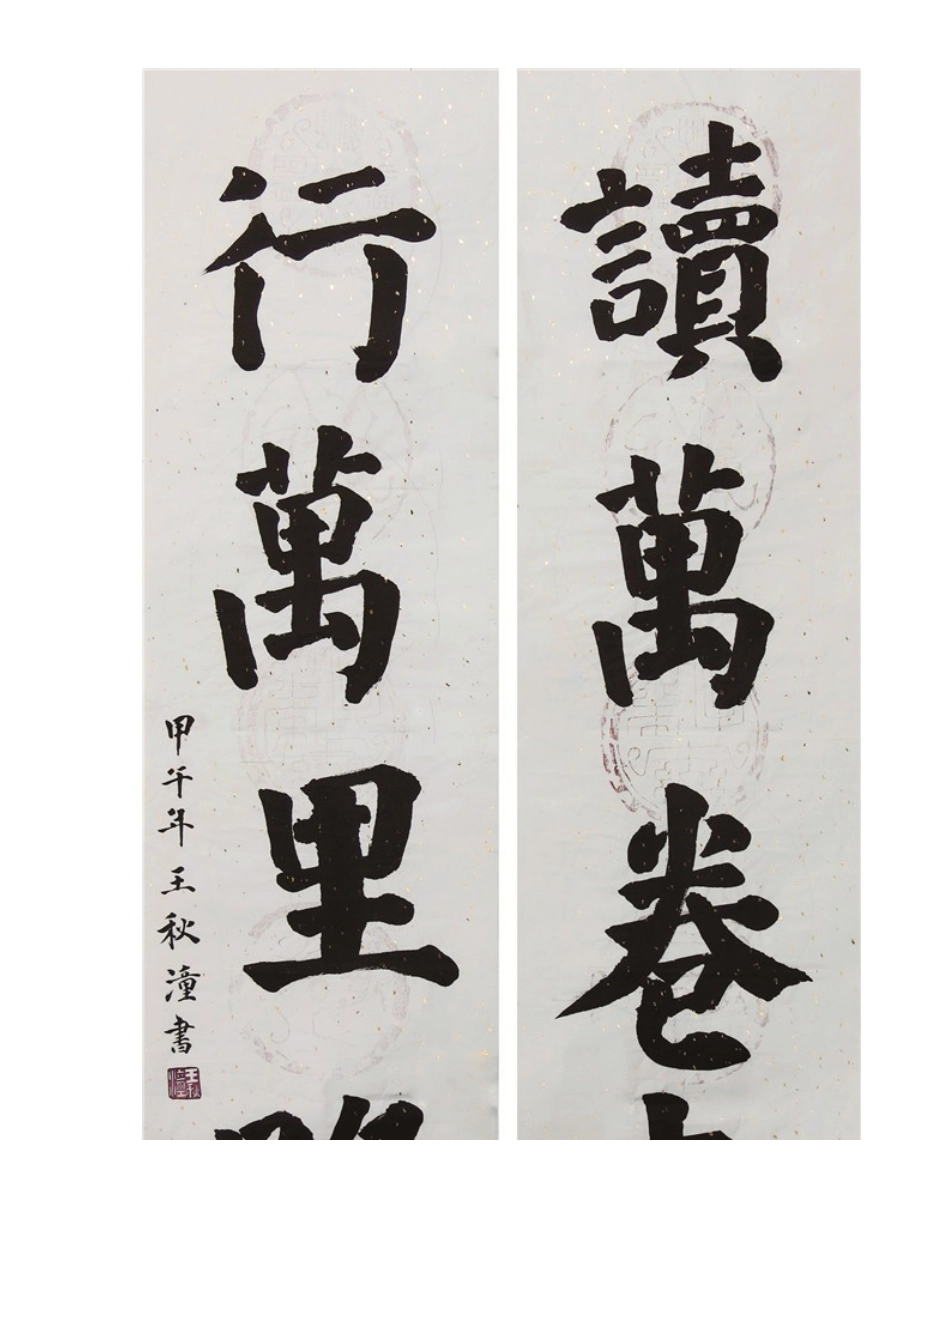 讀萬卷
行萬里
甲午年王秋潼書